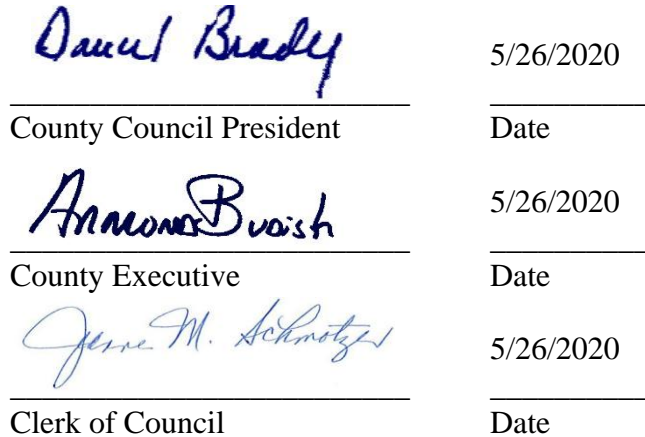 Daniel Brady 5/26/2020
County Council President Date
Armond Budish 5/26/2020
County Executive Date
Jeanne M. Schmotzer 5/26/2020
Clerk of Council Date